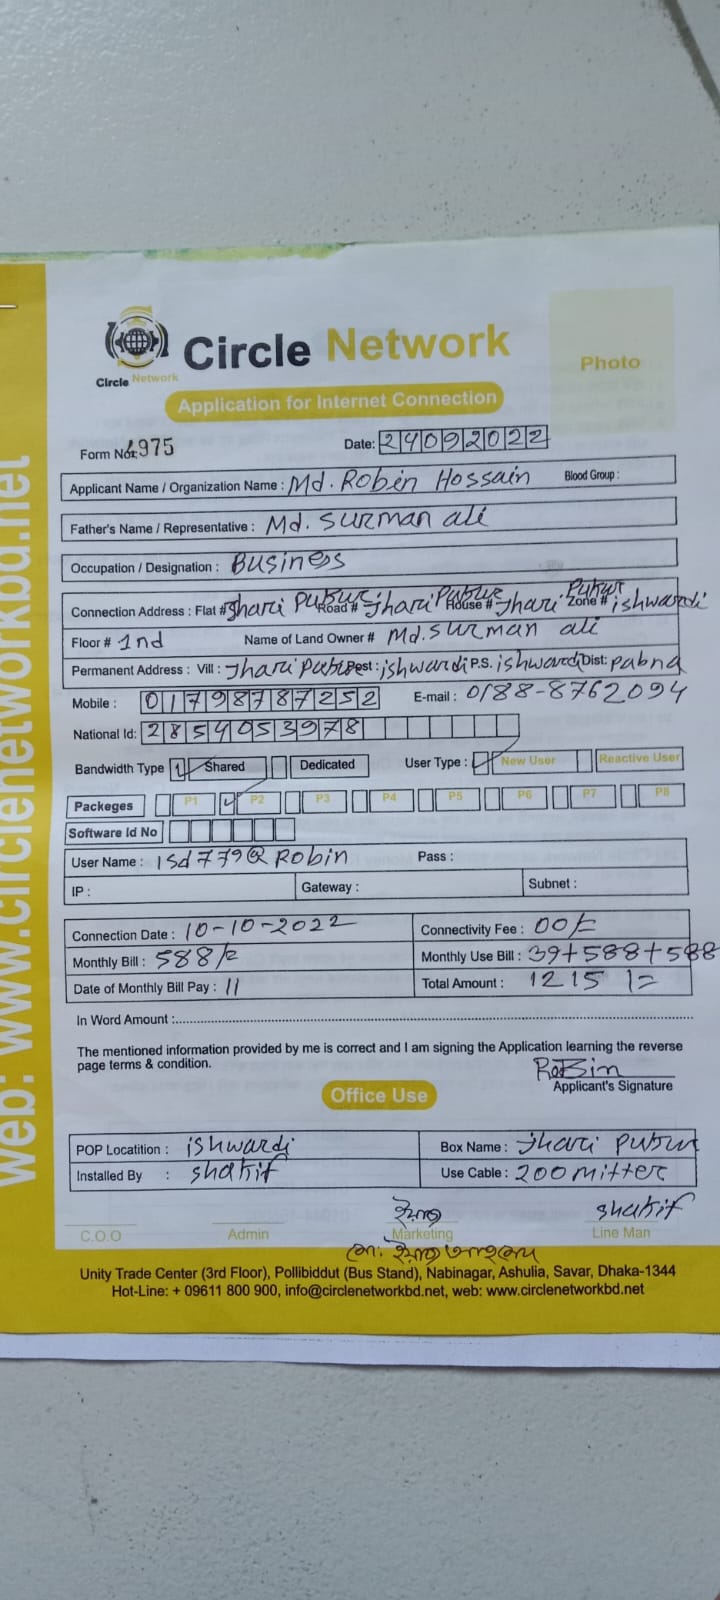 web: www.circlenetworkbd.net
Circle Network
Circle Network
Photo
Application for Internet Connection
Form No: 1975 Date: 24092022
Applicant Name / Organization Name : Md. Robin Hossain Blood Group :
Father's Name / Representative : Md. Surman ali
Occupation / Designation : Business
Connection Address : Flat # Jhari Pukur Road # Jhari Pukur House # Jhari Pukur Zone # ishwardi
Floor # 1nd Name of Land Owner # Md. Surman ali
Permanent Address : Vill : Jhari Pukur Post : ishwardi P.S. ishwardi Dist: pabna
Mobile : 01798787252 E-mail : 0188-8762094
National Id: 2854053978
Bandwidth Type Shared Dedicated User Type : New User Reactive User
Packeges P1 P2 P3 P4 P5 P6 P7 P8
Software Id No
User Name : isd779@Robin Pass :
IP : Gateway : Subnet :
Connection Date : 10-10-2022 Connectivity Fee : 00/=
Monthly Bill : 588/= Monthly Use Bill : 39+588+588
Date of Monthly Bill Pay : 11 Total Amount : 1215 /=
In Word Amount :
The mentioned information provided by me is correct and I am signing the Application learning the reverse
page terms & condition.
RoBin
Applicant's Signature
Office Use
POP Locatition : ishwardi Box Name : Jhari Pukur
Installed By : Shakif Use Cable : 200 mitter
Shakif
C.O.O Admin Marketing Line Man
Unity Trade Center (3rd Floor), Pollibiddut (Bus Stand), Nabinagar, Ashulia, Savar, Dhaka-1344
Hot-Line: + 09611 800 900, info@circlenetworkbd.net, web: www.circlenetworkbd.net